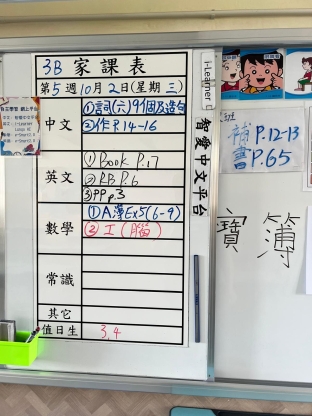 3B 家課表
第5週10月2日(星期三)
中文
①詞(六)9個及造句
②作P.14-16
英文
①Book P.17
②RB P.6
③PP p.3
數學
①A簿Ex5(6-9)
②工(腦)
常識
其它
值日生 3,4
i-Learner
智學中文平台
P.12-13
書P.65
簿